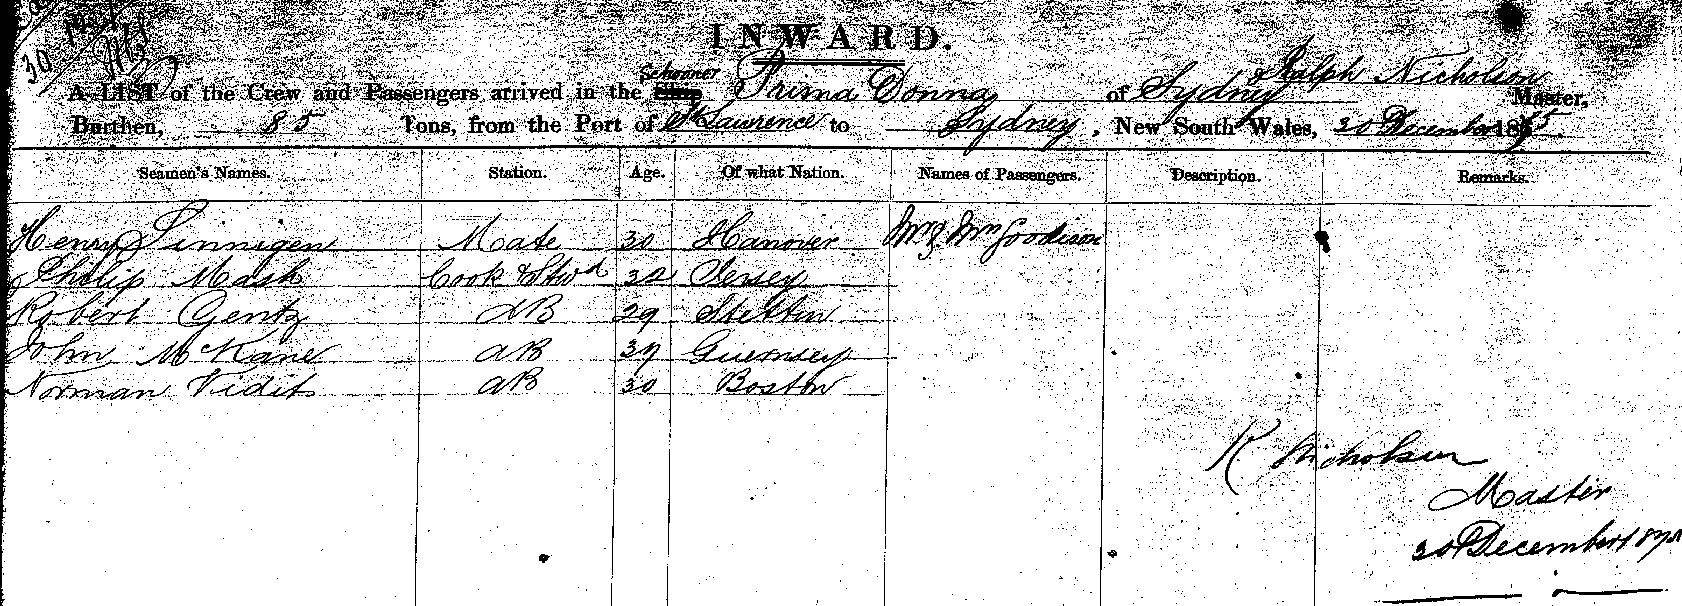 INWARD.
A LIST of the Crew and Passengers arrived in the Schooner Prima Donna of Sydney Ralph Nicholson Master,
Burthen, 85 Tons, from the Port of St Lawrence to Sydney, New South Wales, 30 December 1875
Seamen's Names. Station. Age. Of what Nation. Names of Passengers. Description. Remarks.
Henry Sinnigen Mate 30 Hanover Goodison
Philip Mash Cook & Stwd 32 Jersey
Robert Gentz AB 29 Stettin
John McKane AB 37 Guernsey
Norman Vidit AB 30 Boston
R Nicholson
Master
30 December 1875